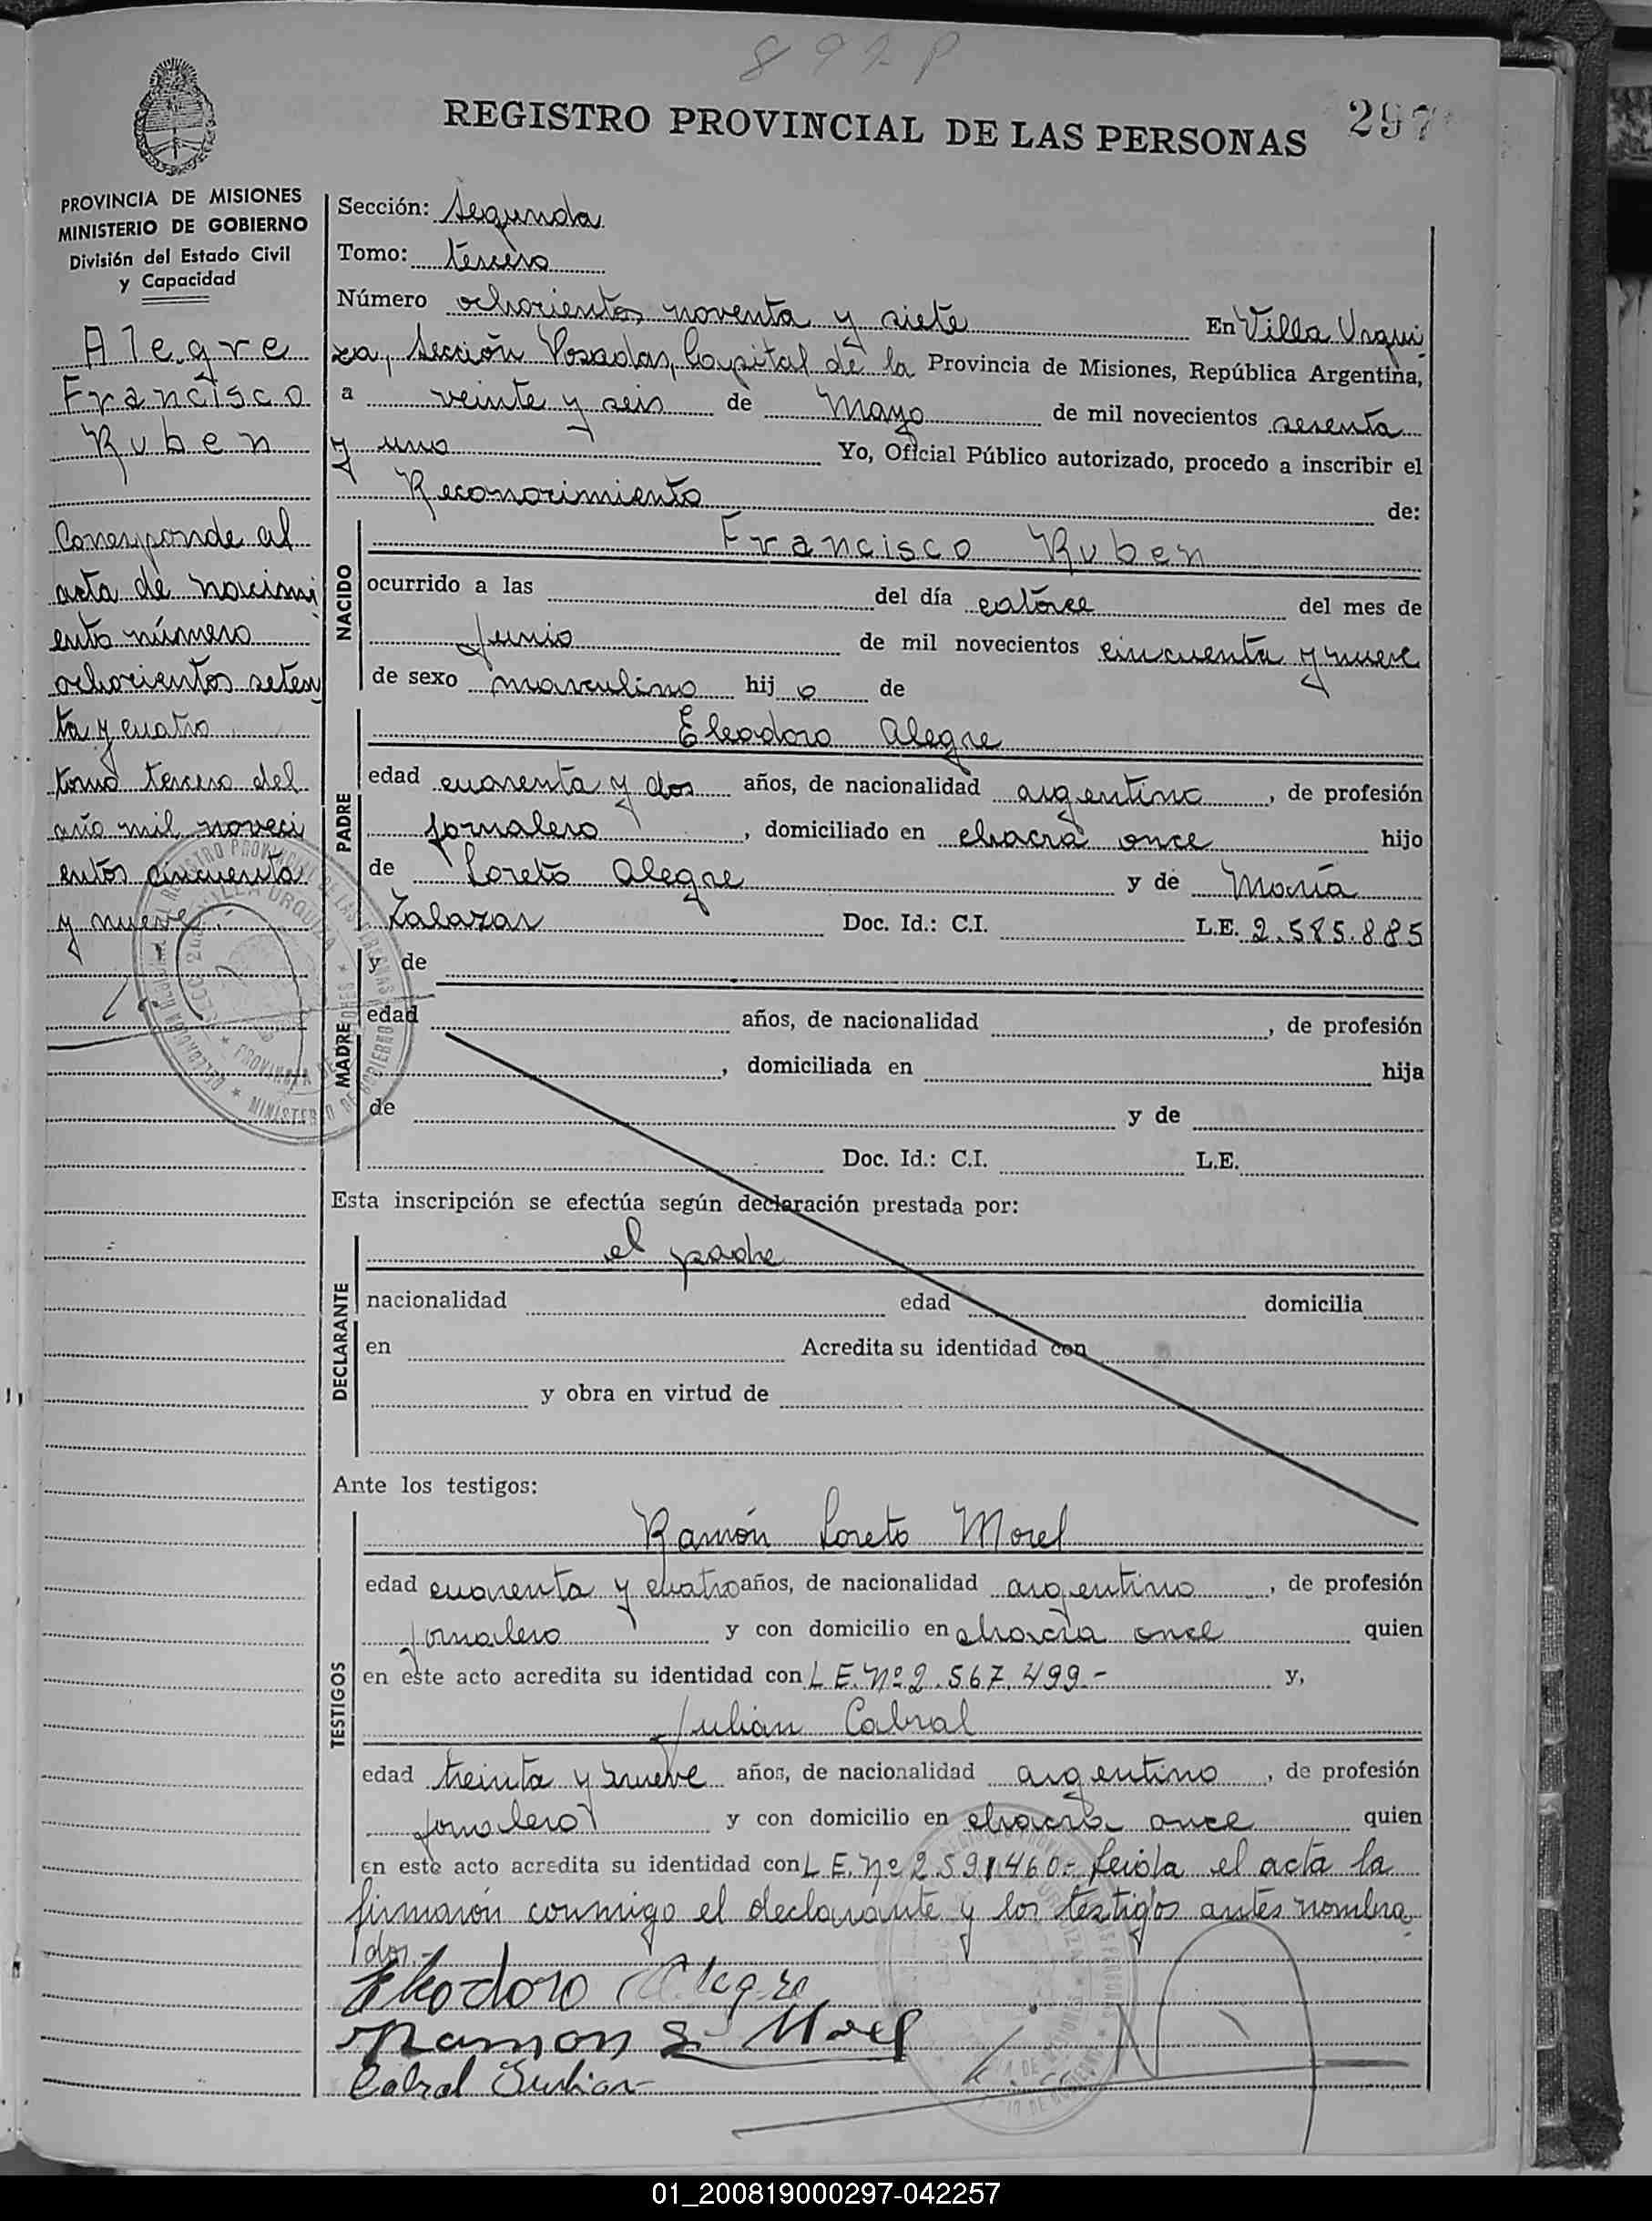 897 P
REGISTRO PROVINCIAL DE LAS PERSONAS
297
PROVINCIA DE MISIONES
MINISTERIO DE GOBIERNO
División del Estado Civil
y Capacidad
Alegre
Francisco
Ruben
Corresponde al
acta de nacimi
ento número
ochocientos seten
ta y cuatro
tomo tercero del
año mil noveci
entos cincuenta
y nueve.
Sección: Segunda
Tomo: tercero
Número ochocientos noventa y siete En Villa Urqui
za, Sección Posadas, Capital de la Provincia de Misiones, República Argentina,
a veinte y seis de Mayo de mil novecientos sesenta
y uno Yo, Oficial Público autorizado, procedo a inscribir el
Reconocimiento de:
NACIDO
Francisco Ruben
ocurrido a las del día catorce del mes de
Junio de mil novecientos cincuenta y nueve
de sexo masculino hij o de
PADRE
Eleodoro Alegre
edad cuarenta y dos años, de nacionalidad argentino, de profesión
jornalero, domiciliado en chacra once hijo
de Loreto Alegre y de María
Zalazar Doc. Id.: C.I. L.E. 2.585.885
MADRE
y de
edad años, de nacionalidad , de profesión
, domiciliada en hija
de y de
Doc. Id.: C.I. L.E.
Esta inscripción se efectúa según declaración prestada por:
DECLARANTE
el padre
nacionalidad edad domicilia
en Acredita su identidad con
y obra en virtud de
Ante los testigos:
TESTIGOS
Ramón Loreto Morel
edad cuarenta y cuatro años, de nacionalidad argentino, de profesión
jornalero y con domicilio en chacra once quien
en este acto acredita su identidad con L.E. Nº 2.567.499.- y,
Julián Cabral
edad treinta y nueve años, de nacionalidad argentino, de profesión
jornalero y con domicilio en chacra once quien
en este acto acredita su identidad con L.E. Nº 2591460.- Leida el acta la
firmarón conmigo el declarante y los testigos antes nombra
dos.-
Eleodoro Alegre
Ramon L. Morel
Cabral Julian
01_200819000297-042257